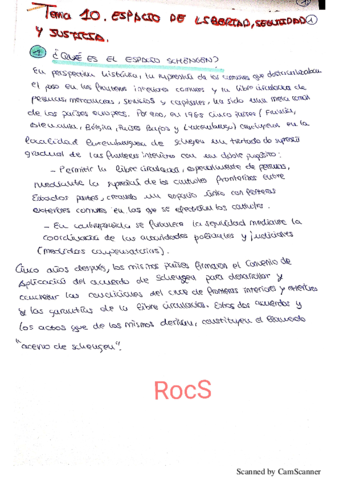 Tema 10. ESPACIO DE LIBERTAD, SEGURIDAD 1
Y JUSTICIA.
1 ¿QUÉ ES EL ESPACIO SCHENGEN?
En perspectiva histórica, la supresión de los controles que obstaculizaban
el paso en las fronteras interiores comunes y la libre circulación de
personas, mercancías, servicios y capitales, ha sido una meta común
de los países europeos. Por ello, en 1985 cinco países (Francia,
Alemania, Bélgica, Países Bajos y Luxemburgo) concluyeron en la
localidad luxemburguesa de Schengen un tratado de supresión
gradual de las fronteras interiores con un doble propósito:
- Permitir la libre circulación, especialmente de personas,
mediante la supresión de los controles fronterizos entre
Estados partes, creando un espacio único con fronteras
exteriores comunes en las que se efectúan los controles.
- En contrapartida se fortalece la seguridad mediante la
coordinación de las autoridades policiales y judiciales
(medidas compensatorias).
Cinco años después, los mismos países firmaron el Convenio de
Aplicación del acuerdo de Schengen para desarrollar y
concretar las condiciones del cruce de fronteras interiores y exteriores
y las garantías de la libre circulación. Estos dos acuerdos y
los actos que de los mismos derivan, constituyen el llamado
"acervo de Schengen".
RocS
Scanned by CamScanner